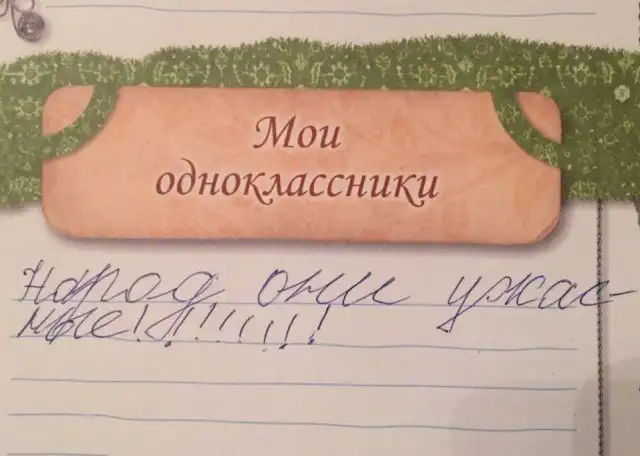 Мои
одноклассники
Народ они ужас-
ные!!!!!!!!